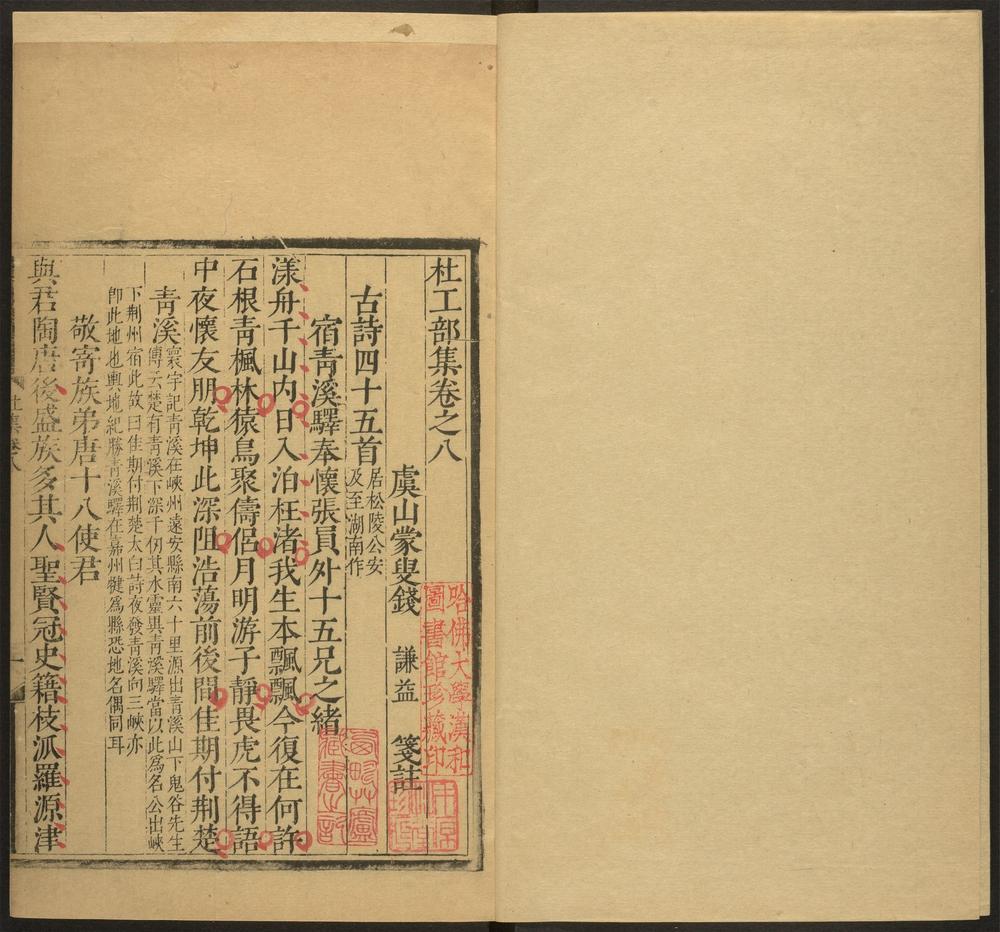 杜工部集卷之八
虞山蒙叟錢 謙益 箋註
古詩四十五首 居松陵公安
及至湖南作
宿靑溪驛奉懷張員外十五兄之緒
漾舟千山內日入泊枉渚我生本飄飄今復在何許
石根靑楓林猿鳥聚儔侶月明游子靜畏虎不得語
中夜懷友朋乾坤此深阻浩蕩前後間佳期付荆楚
靑溪 寰宇記靑溪在峽州遠安縣南六十里源出靑溪山下鬼谷先生
傳云楚有靑溪下深千仞其水靈異靑溪驛當以此爲名公出峽
下荆州宿此故曰佳期付荆楚太白詩夜發靑溪向三峽亦
卽此地也輿地紀勝靑溪驛在嘉州犍爲縣恐地名偶同耳
敬寄族弟唐十八使君
與君陶唐後盛族多其人聖賢冠史籍枝泒羅源津
杜集卷八
一
哈佛大學漢和
圖書館珍藏印